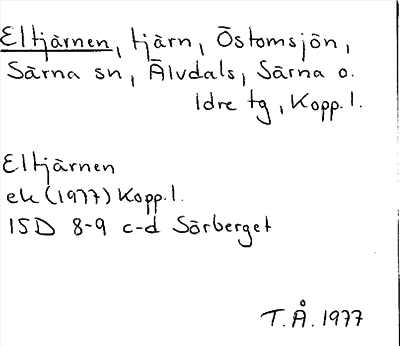 Eltjärnen, tjärn, Östomsjön,
Särna sn, Älvdals, Särna o.
Idre tg, Kopp.l.
Eltjärnen
ek (1977) Kopp.l.
15D 8-9 c-d Sörberget
T.Å. 1977